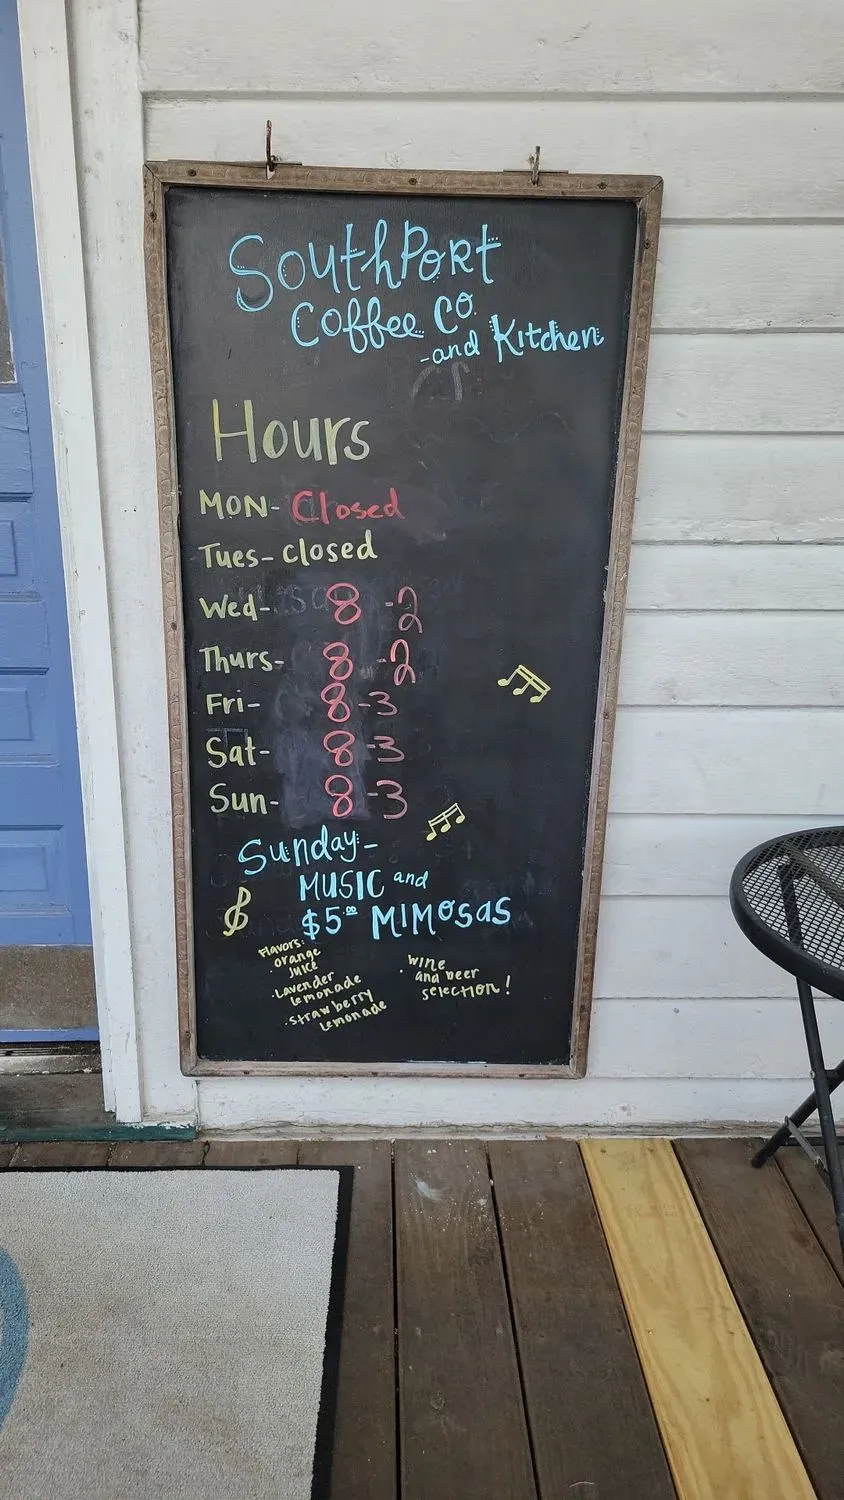 SouthPort
Coffee Co.
-and Kitchen
Hours
MON- Closed
Tues- closed
Wed- 8 -2
Thurs- 8 -2
Fri- 8 -3
Sat- 8 -3
Sun- 8 -3
Sunday-
MUSIC and
$5.00 MIMOSAS
Flavors:
orange
juice
·Lavender
Lemonade
·Strawberry
Lemonade
· WINE
and beer
selection!